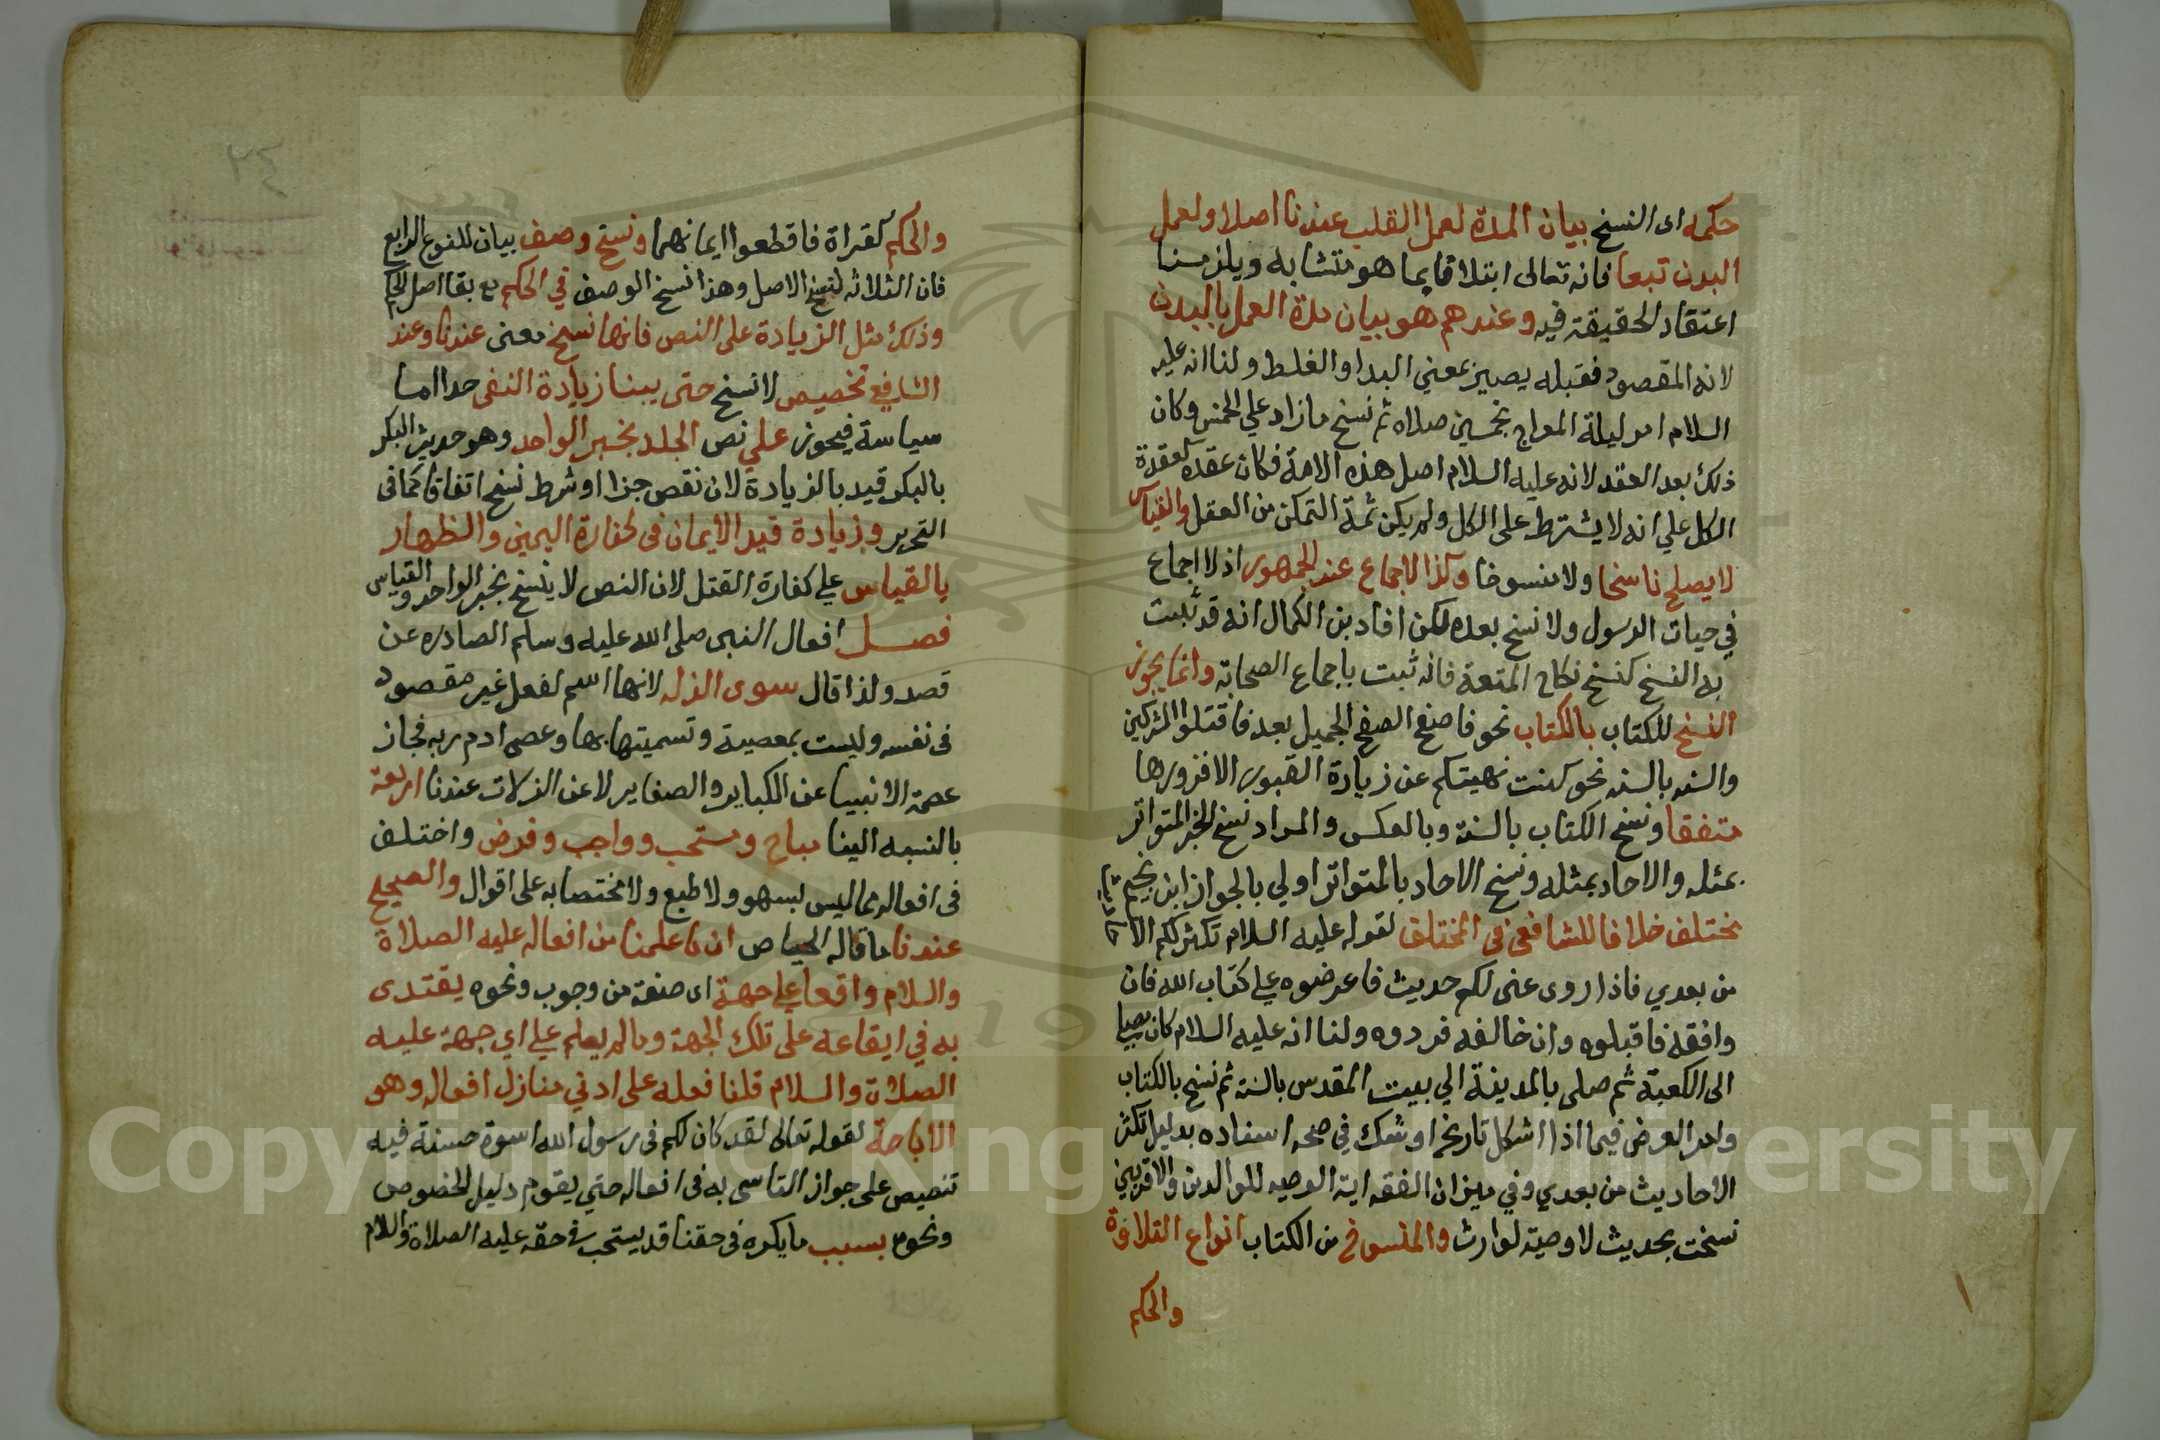 حكمه اى النسخ بيان المدة لعمل القلب عندنا اصلا ولعمل
البدن تبعا فانه تعالى ابتلانا بما هو متشابه ويلزمنا
اعتقاد الحقيقة فيه وعندهم هو بيان مدة العمل بالبدن
لانه المقصود فقبله يصير بمعنى البدا والغلط ولنا انه عليه
السلام امر ليلة المعراج بخمسين صلاه ثم نسخ ما زاد علي الخمس وكان
ذلك بعد العقد لانه عليه السلام اصل هذه الامة فكان عقده كعقدة
الكل علي انه لا يشترط على الكل ولم يكن ثمة التمكن من العقل والقياس
لا يصلح ناسخا ولا منسوخا وكذا الاجماع عند الجمهور اذ لا اجماع
في حيات الرسول ولا نسخ بعده لكن افاد بن الكمال انه قد ثبت
به النسخ كنسخ نكاح المتعة فانه ثبت باجماع الصحابة وانما يجوز
النسخ للكتاب بالكتاب نحو فاصفح الصفح الجميل بعد فاقتلوا المشركين
والسنه بالسنه نحو كنت نهيتكم عن زيارة القبور الا فزوروها
متفقا ونسخ الكتاب بالسنة وبالعكس والمراد نسخ الخبر المتواتر
بمثله والاحاد بمثله ونسخ الاحاد بالمتواتر اولي بالجواز ابن نجيم
مختلف خلافا للشافعي في المختلف لقوله عليه السلام تكثر لكم الاحاديث
من بعدي فاذا روى عنى لكم حديث فاعرضوه علي كتاب الله فان
وافقه فاقبلوه وان خالفه فردوه ولنا انه عليه السلام كان يصلي
الى الكعبة ثم صلى بالمدينة الي بيت المقدس بالسنة ثم نسخ بالكتاب
وامر العرض فيما اذا اشكل تاريخ او شك في صحه اسناده بدليل تكثر
الاحاديث من بعدي وفي ميزان الفقه اية الوصيه للوالدين والاقربين
نسخت بحديث لا وصية لوارث والمنسوخ من الكتاب انواع التلاوة
والحكم
٢٤
والحكم كقراة فاقطعوا ايمانهما ونسخ وصف بيان للنوع الرابع
فان الثلاثه لنسخ الاصل وهذا نسخ الوصف في الحكم مع بقا اصل الحكم
وذلك مثل الزيادة على النص فانها نسخ معنى عندنا وعند
الشافعي تخصيص لا نسخ حتى يبنا زيادة النفى حدا اما
سياسة فيجوز علي نص الجلد بخبر الواحد وهو حديث البكر
بالبكر قيد بالزيادة لان نقص جزا او شرط نسخ اتفاقا كما فى
التحرير وزيادة قيد الايمان فى كفارة اليمين والظهار
بالقياس علي كفارة القتل لان النص لا ينسخ بخبر الواحد والقياس
فصل افعال النبى صلى الله عليه وسلم الصادره عن
قصد ولذا قال سوى الزله لانها اسم لفعل غير مقصود
فى نفسه وليست بمعصية وتسميتها بها وعصى ادم ربه فجاز
عصمة الانبيا عن الكباير والصغاير لا عن الزلات عندنا اربعة
بالنسبه الينا مباح ومستحب وواجب وفرض واختلف
فى افعاله مما ليس بسهو ولا طبع ولا مختصا به على اقوال والصحيح
عندنا ما قاله الجصاص ان ما علمنا من افعاله عليه الصلاة
والسلام واقعا علي جهة اى صفة من وجوب ونحوه يقتدى
به في ايقاعه على تلك الجهة وما لم يعلم علي اي جهة عليه
الصلاة والسلام قلنا فعله على ادني منازل افعاله وهو
الاباحة لقوله تعالى لقد كان لكم فى رسول الله اسوة حسنة فيه
تنصيص على جواز التاسى به فى افعاله حتي يقوم دليل الخصوص
ونحوه بسبب ما يكره فى حقنا قد يستحب فى حقه عليه الصلاة والسلام
Copyright © King Saud University